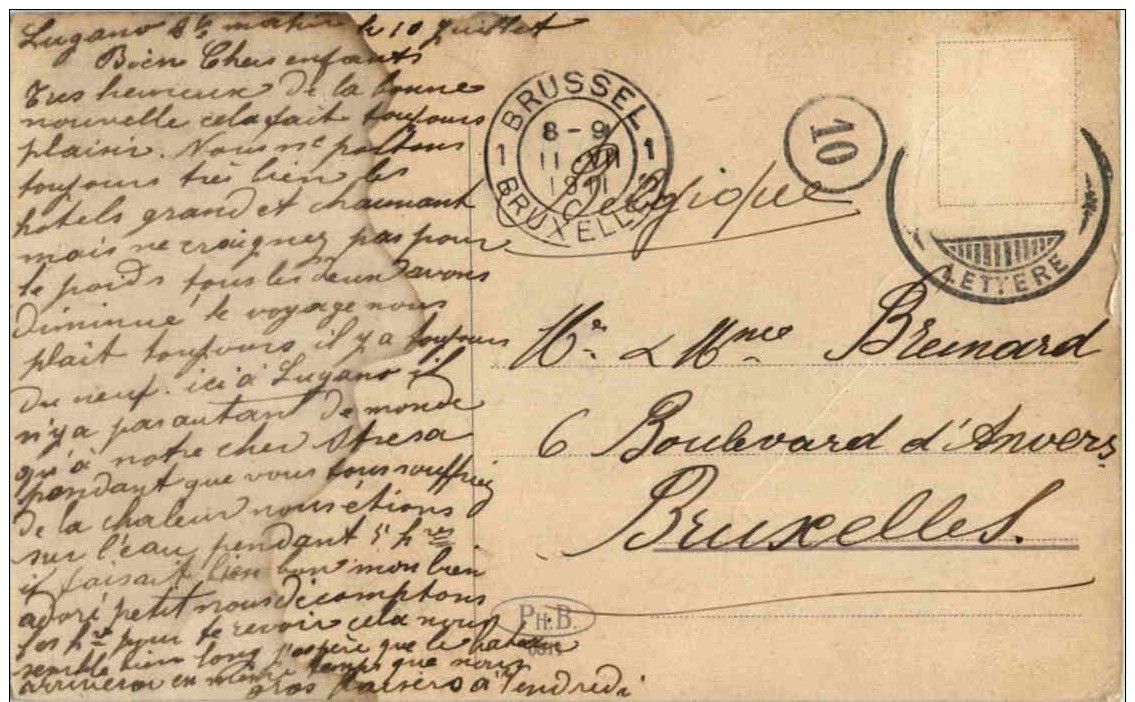 Lugano matin le 10 Juillet
Bien Chers enfants
Très heureux de la bonne
nouvelle cela fait toujours
plaisir. Nous ne portons
toujours très bien les
hôtels grand et chaumant
mais ne craignez pas pour
le poids tous les deux avons
diminué le voyage nous
plait toujours il y a toujours
du neuf. ici à Lugano il
n'y a pas autant de monde
qu'à notre cher Stresa
pendant que vous tous souffriez
de la chaleur nous étions
sur l'eau pendant 5 hres
il faisait bien bon mon bien
adoré petit nous décomptons
les hres pour te revoir cela nous
semble bien long j'espère que le bateau
arrivera en même temps que nous
gros baisers à Vendredi
1 BRUSSEL 1
8-9
11 VII
1911
BRUXELLES
10
LETTERE
Belgique
Mr. & Mme Brunard
6 Boulevard d'Anvers.
Bruxelles.
PH.B.